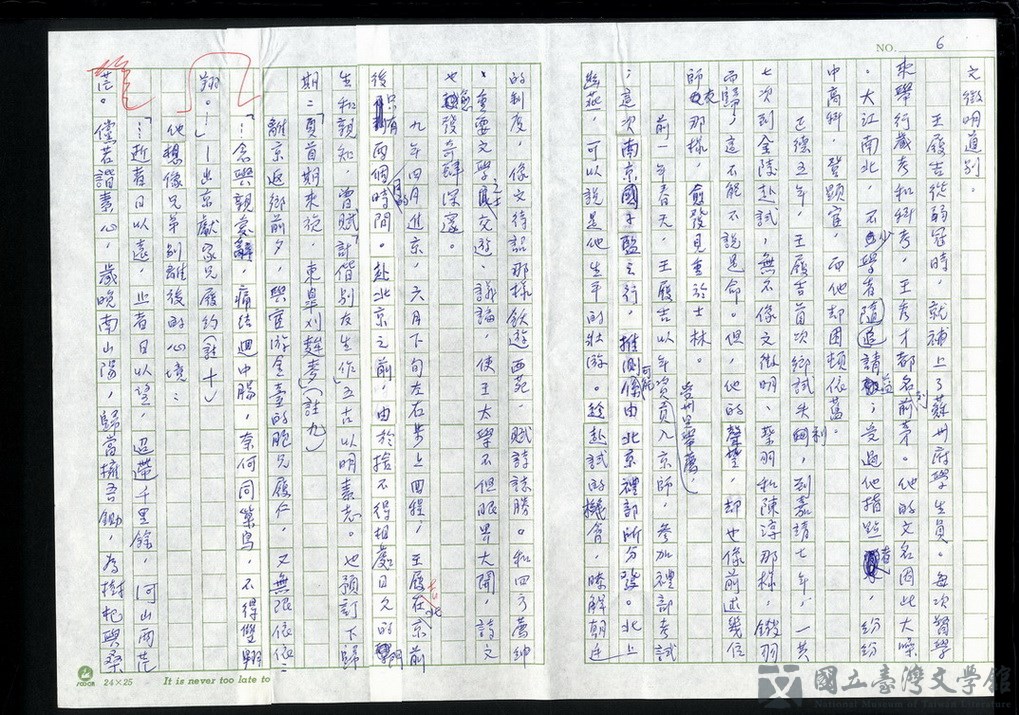 NO. 6
文徵明道別。
王履吉從弱冠時，就補上了蘇州府學生員。每次督學
來舉行歲考和科考，王秀才都名列前茅。他的文名因此大噪
。大江南北，不少學者隨追請益；受過他指點者，紛紛
中高科，登顯宦，而他却困頓依舊。
正德五年，王履吉首次鄉試失利，到嘉靖七年，一共
七次到金陵赴試，無不像文徵明、蔡羽和陳淳那樣，鎩羽
而歸，這不能不說是命。但，他的聲望，却也像前述幾位
師友那樣，愈發見重於士林。
前一年春天，王履吉以年資貢入京師，參加禮部考試
；這次南京國子監之行，可能由北京禮部所分發。北上
幽燕，可以說是他生平的壯游。趁赴試的機會，瞭解朝廷
的制度，像文待詔那樣飲遊西苑，賦詩誌勝。和四方薦紳
、重要文學之士交遊、議論，使王太學不但眼界大開，詩文
也愈發奇肆深邃。
九年四月進京，六月下旬左右步上回程，王履吉在北京前
後只有兩個月的時間。赴北京之前，由於捨不得相處日久的
生和親知，曾賦「計偕別友生作」五古以明素志。也預訂下歸
期：「夏首期來旋，東皋刈麰麥」(註九)
離京返鄉前夕，與宦游金臺的胞兄履仁，又無限依依：
「…念與親愛辭，痛結迴中腸，奈何同巢鳥，不得雙翱
翔。…」—出京獻家兄履約(註十)
他想像兄弟別離後的心境：
「…逝者日以遠，止者日以望，迢遰千里餘，河山兩茫
茫。儻若諧素心，歲晚南山陽，歸當擁吾鋤，為樹杞與桑
24×25
It is never too late to
國立臺灣文學館
National Museum of Taiwan Literature